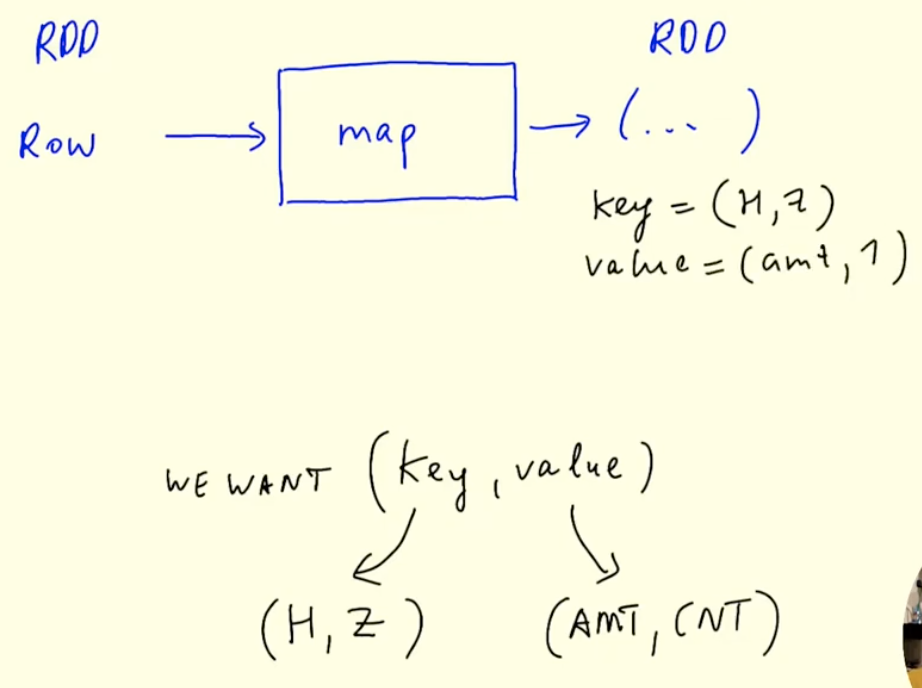 RDD
RDD
Row
map
(... )
key = (H,Z)
value = (amt, 1)
WE WANT (key, value)
(H, Z)
(AMT, CNT)